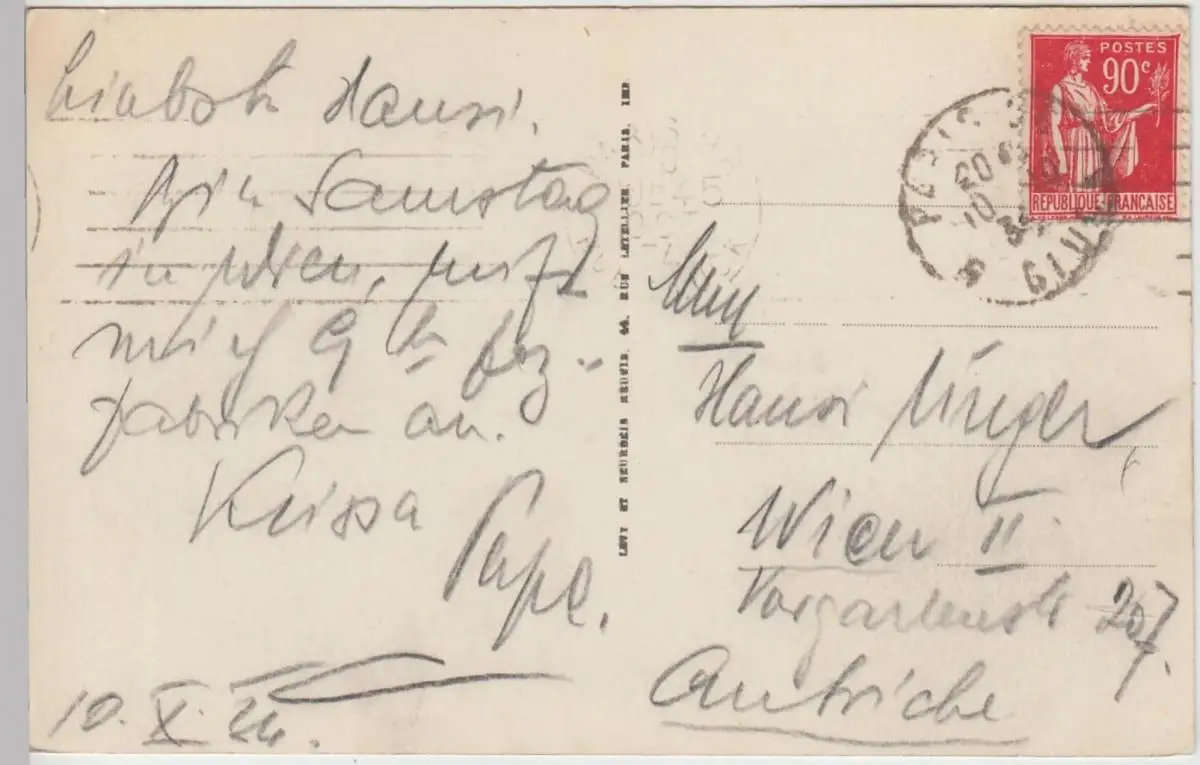 Liebste Hansi.
Bin Samstag
in Wien, ruft
mich 9h
fabriken an.
Küsse
10. X.
LEVY ET NEURDEIN REUNIS, 44, RUE LETELLIER, PARIS, IMP
POSTES
90c
REPUBLIQUE FRANÇAISE
PARIS
Hansi Unger,
Wien II.
Vorgartenstr 207.
Autriche